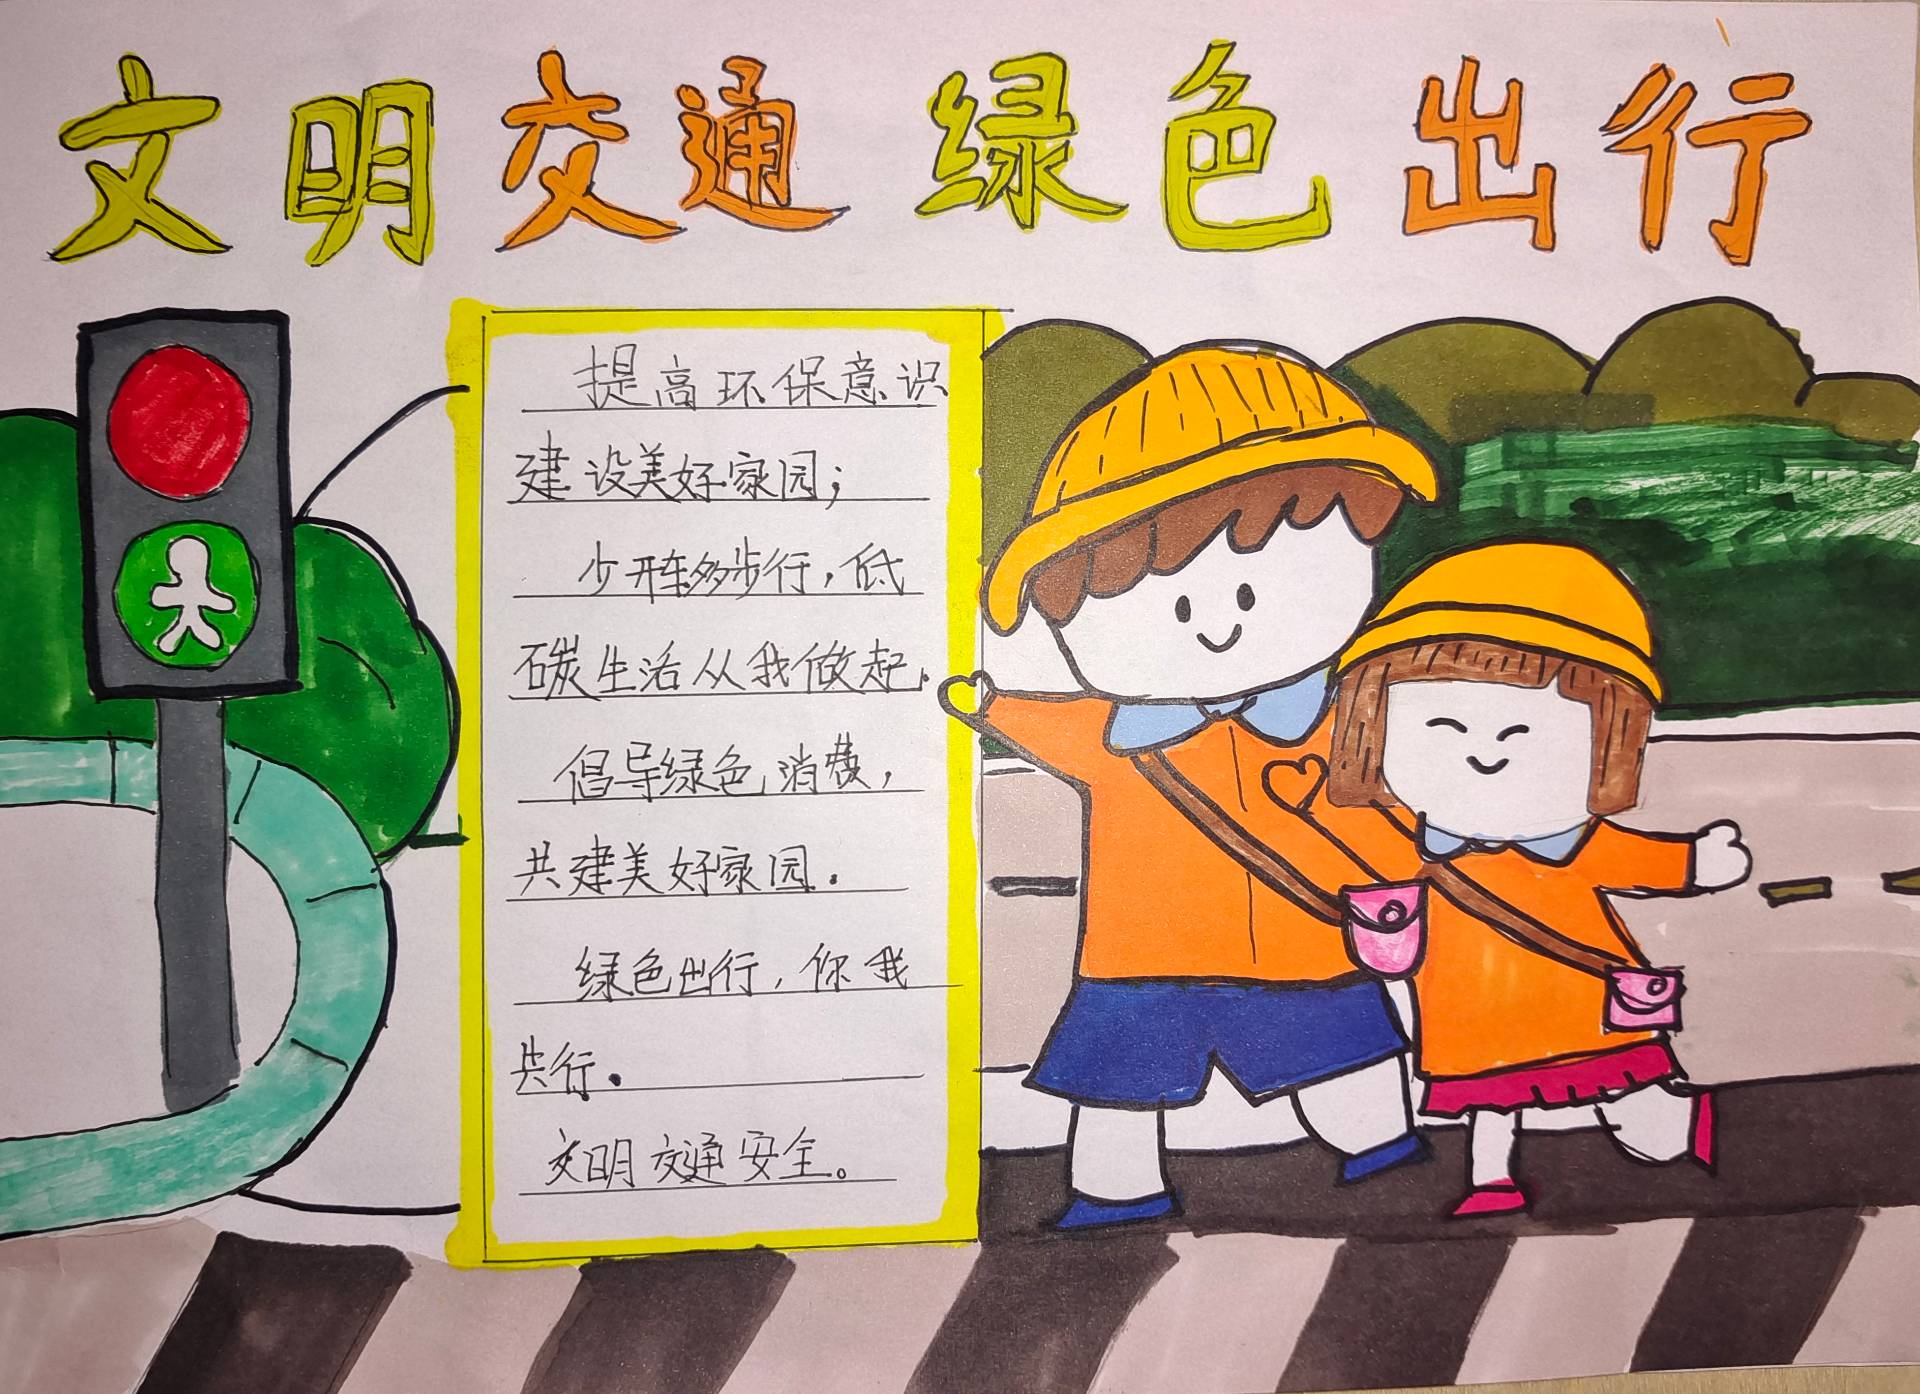 文明交通 绿色出行
提高环保意识
建设美好家园；
少开车多步行，低
碳生活从我做起.
倡导绿色消费，
共建美好家园.
绿色出行，你我
共行.
文明交通安全。